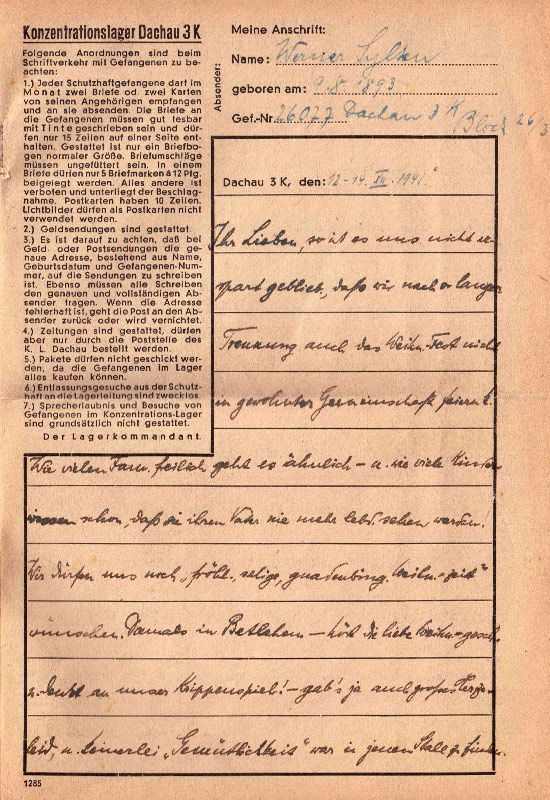 Konzentrationslager Dachau 3 K
Folgende Anordnungen sind beim
Schriftverkehr mit Gefangenen zu be-
achten:
1.) Jeder Schutzhaftgefangene darf im
Monat zwei Briefe od. zwei Karten
von seinen Angehörigen empfangen
und an sie absenden. Die Briefe an
die Gefangenen müssen gut lesbar
mit Tinte geschrieben sein und dür-
fen nur 15 Zeilen auf einer Seite ent-
halten. Gestattet ist nur ein Briefbo-
gen normaler Größe. Briefumschläge
müssen ungefüttert sein. In einem
Briefe dürfen nur 5 Briefmarken à 12 Pfg.
beigelegt werden. Alles andere ist
verboten und unterliegt der Beschlag-
nahme. Postkarten haben 10 Zeilen.
Lichtbilder dürfen als Postkarten nicht
verwendet werden.
2.) Geldsendungen sind gestattet.
3.) Es ist darauf zu achten, daß bei
Geld- oder Postsendungen die ge-
naue Adresse, bestehend aus Name,
Geburtsdatum und Gefangenen-Num-
mer, auf die Sendungen zu schreiben
ist. Ebenso müssen alle Schreiben
den genauen und vollständigen Ab-
sender tragen. Wenn die Adresse
fehlerhaft ist, geht die Post an den Ab-
sender zurück oder wird vernichtet.
4.) Zeitungen sind gestattet, dürfen
aber nur durch die Poststelle des
K. L. Dachau bestellt werden.
5.) Pakete dürfen nicht geschickt wer-
den, da die Gefangenen im Lager
alles kaufen können.
6.) Entlassungsgesuche aus der Schutz-
haft an die Lagerleitung sind zwecklos.
7.) Sprecherlaubnis und Besuche von
Gefangenen im Konzentrations-Lager
sind grundsätzlich nicht gestattet.
Der Lagerkommandant.
Absender:
Meine Anschrift:
Name: Werner Sylten
geboren am: 9.8.1893
Gef.-Nr. 26077 Dachau 3 K
Block 26/3
Dachau 3 K, den: 12-14. XII. 1941
Ihr Lieben, so ist es uns nicht er-
spart geblieb., daß wir nach so langer
Trennung auch das Weihn. Fest nicht
in gewohnter Gemeinschaft feiern!
Wie vielen Fam. freilich geht es ähnlich – u. wie viele Kinder
wissen schon, daß sie ihren Vater nie mehr lebd. sehen werden!
Wir dürfen uns noch „fröhl., selige, gnadenbring. Weihn.-zeit"
wünschen. Damals in Betlehem – hört die liebe Weihn.-gesch.
u. denkt an unser Krippenspiel! – gab's ja auch großes Herze-
leid, u. keinerlei „Gemütlichkeit" war in jenem Stall z. finden.
1285